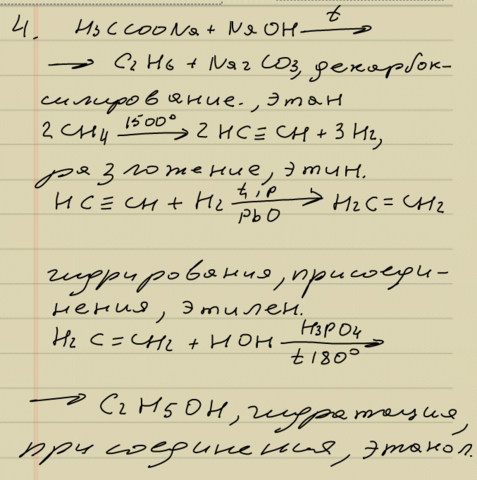 4. H3CCOONa + NaOH t→
→ C2H6 + Na2CO3, декарбок-
силирование., этан
2CH4 1500°→ 2 HC≡CH + 3H2,
разложение, этин.
HC≡CH + H2 t,p PbO→ H2C=CH2
гидрирования, присоеди-
нения, этилен.
H2C=CH2 + HOH H3PO4 t180°→
→ C2H5OH, гидратация,
присоединения, этанол.